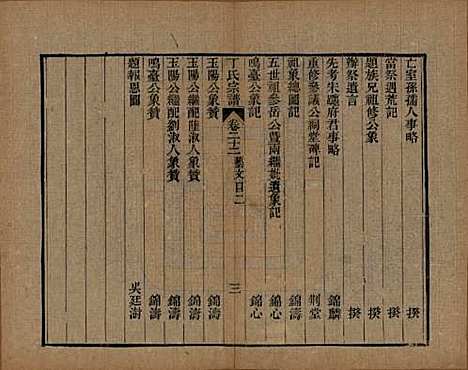 亡室孫孺人事略 撰
當祭遇荒記 撰
題族兄祖修公象 撰
辦祭遺言 撰
先考朱麓府君事略 錦麟
重修參議公祠堂碑記 荆堂
祖象總圖記 錦濤
五世祖參岳公暨兩繼妣遺象記 錦心
鳴臺公象記 錦心
丁氏宗譜 卷二十二 藝文目二 三
玉陽公象贊 錦濤
玉陽公繼配陸淑人象贊 錦濤
玉陽公繼配劉淑人象贊 錦濤
鳴臺公象贊 錦濤
題報恩圖 吳廷澍